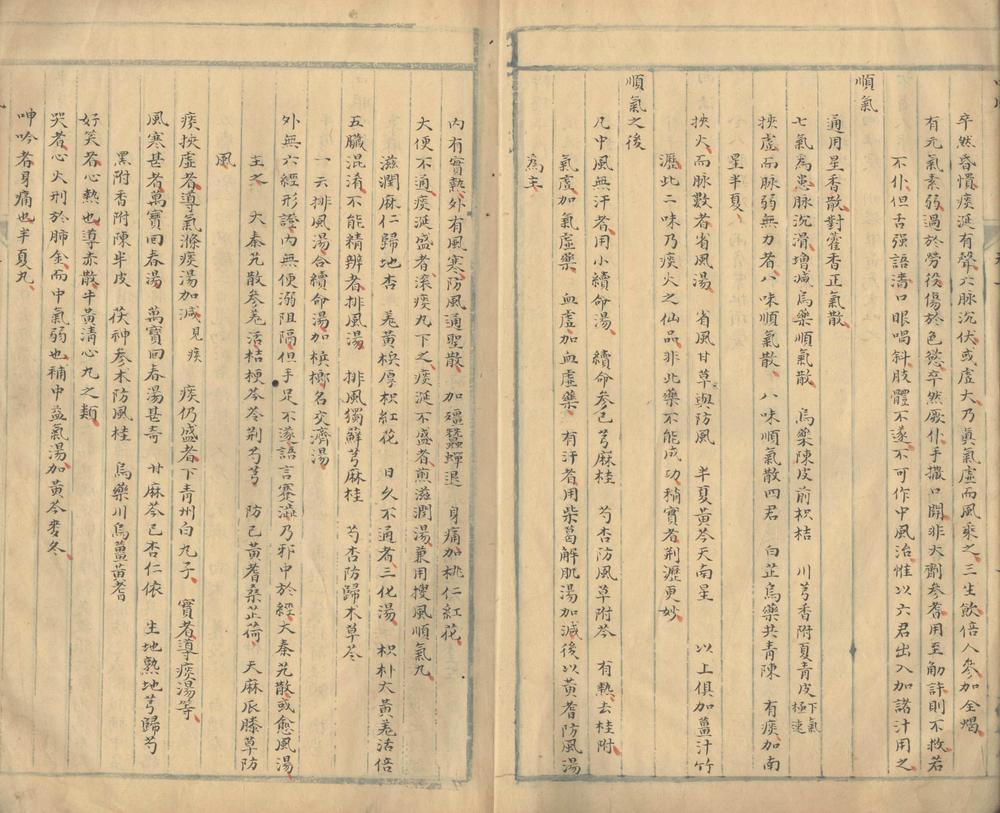 卒然昏憒痰涎有聲六脉沉伏或虛大乃眞氣虛而風乘之三生飲倍人參加全蝎
有元氣素弱過於勞役傷於色慾卒然厥仆手撒口開非大劑參耆用至觔許則不救若
不仆但舌强語濇口眼喎斜肢體不遂不可作中風治惟以六君出入加諸汁用之
順氣
通用星香散對藿香正氣散
七氣為患脉沉滑增減烏藥順氣散 烏藥陳皮前枳桔 川芎香附夏青皮下氣極速
挾虛而脉弱無力者八味順氣散 八味順氣散四君 白芷烏藥共青陳 有痰加南
星半夏
挾火而脉數者省風湯 省風甘草與防風 半夏黃芩天南星 以上俱加薑汁竹
瀝此二味乃痰火之仙品非此藥不能成功稍實者荊瀝更妙
順氣之後
凡中風無汗者用小續命湯 續命參己芎麻桂 芍杏防風草附芩 有熱去桂附
氣虛加氣虛藥 血虛加血虛藥 有汗者用柴葛解肌湯加減後以黃耆防風湯
為主
內有實熱外有風寒防風通聖散 加殭蠶蟬退 身痛加桃仁紅花
大便不通痰涎盛者滾痰丸下之痰涎不盛者煎滋潤湯兼用搜風順氣丸
滋潤麻仁歸地杏 羗黃檳厚枳紅花 日久不通者三化湯 枳朴大黃羗活倍
五臟混淆不能精辨者排風湯 排風獨蘚芎麻桂 芍杏防歸朮草苓
一云排風湯合續命湯加檳榔名交濟湯
外無六經形證內無便溺阻隔但手足不遂語言蹇澁乃邪中於經大秦艽散或愈風湯
主之 大秦艽散參羗活桔梗芩苓荊芍芎 防己黃耆桑芷荷 天麻辰膝草防
風
痰挾虛者導氣滌痰湯加減見痰 痰仍盛者下青州白丸子 實者導痰湯等
風寒甚者萬寶回春湯 萬寶回春湯甚奇 甘麻芩己杏仁依 生地熟地芎歸芍
黑附香附陳半皮 茯神參朮防風桂 烏藥川烏薑黃耆
好笑者心熱也導赤散牛黃清心丸之類
哭者心火刑於肺金而中氣弱也補中益氣湯加黃芩麥冬
呻吟者身痛也半夏丸